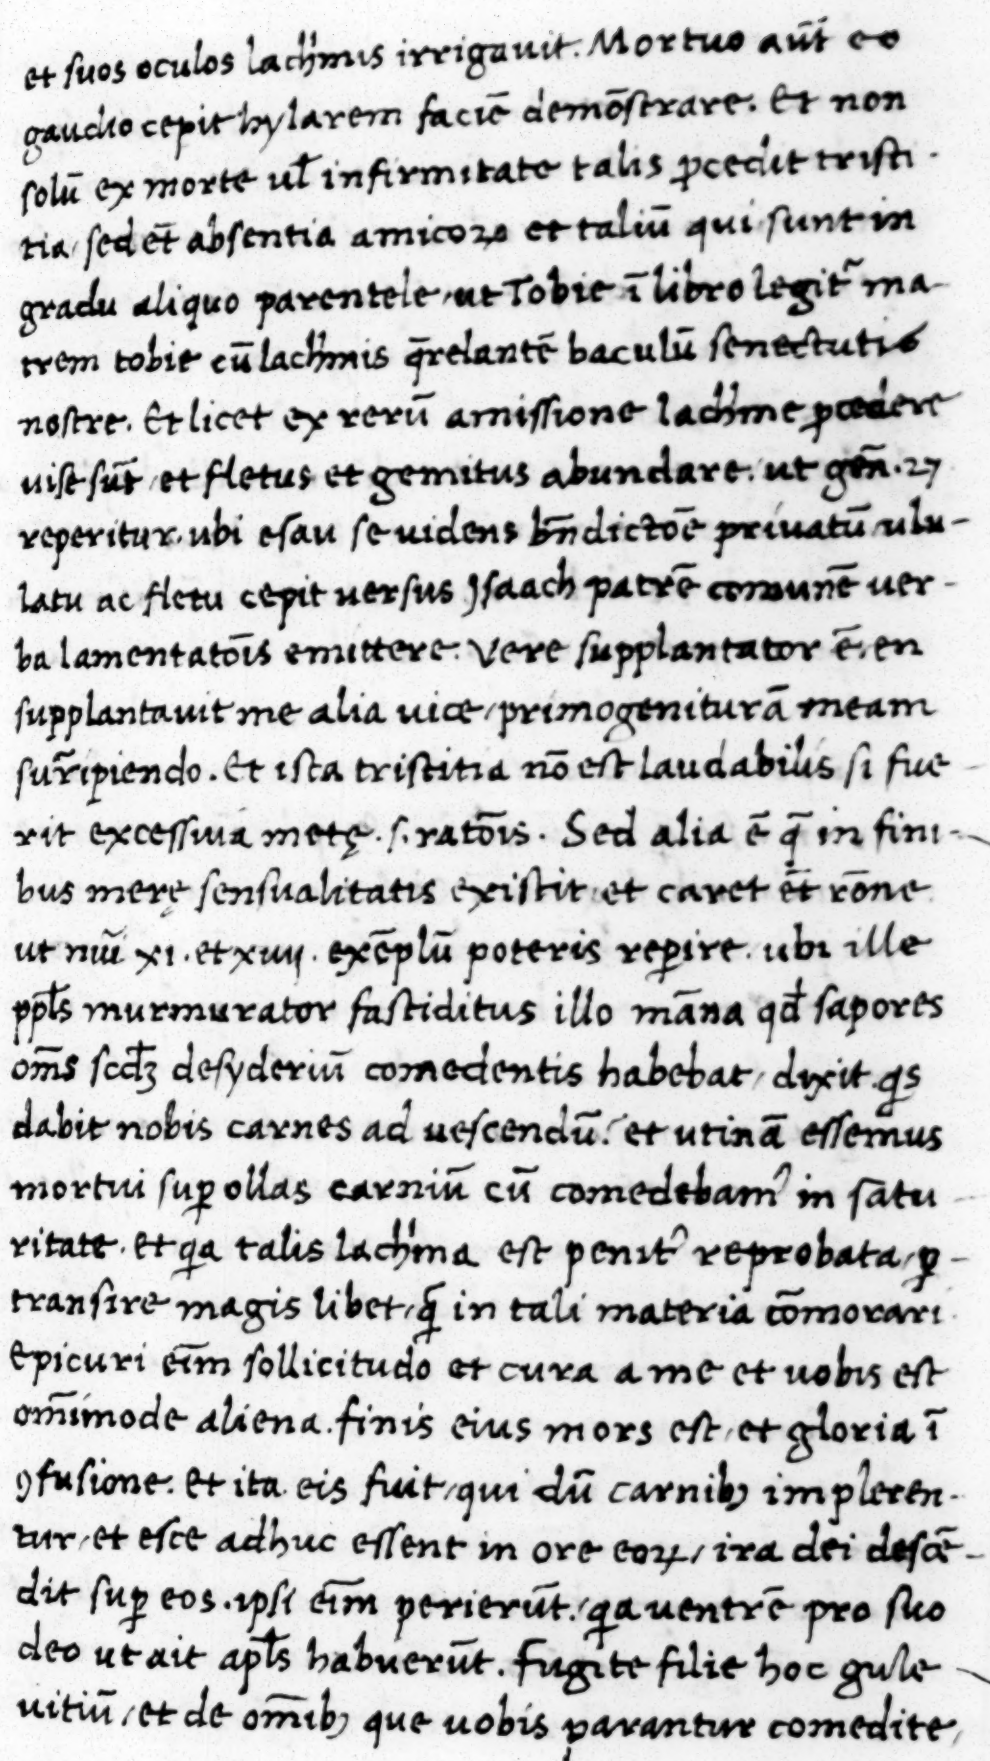 et suos oculos lach'mis irrigauit. Mortuo aūt eo
gaudio cepit hylarem faciē demōstrare. Et non
solū ex morte ul̄ infirmitate talis ꝓcedit tristi-
tia, sed et̄ absentia amicoꝝ et taliū qui sunt in
gradu aliquo parentele, ut Tobie ī libro legit᷑ ma-
trem tobie cū lach'mis q̄relantē baculū senectutis
nostre. Et licet ex rerū amissione lach'me ꝓcedere
uise sūt, et fletus et gemitus abundare. ut gen̄. 27
reperitur. ubi esau se uidens bn̄dictōe priuatū ulu-
latu ac fletu cepit uersus Jsaach patrē comunē uer-
ba lamentatōis emittere. Vere supplantator ē. en
supplantauit me alia uice, primogeniturā meam
surripiendo. Et ista tristitia nō est laudabilis si fue-
rit excessiua metę .s. ratōis. Sed alia ē q̄ in fini-
bus merę sensualitatis existit, et caret et̄ rōne
ut nūi xi. et xiiij. exēplū poteris reꝑire. ubi ille
ppl̄s murmurator fastiditus illo māna qd̄ sapores
om̄s scd̄ꝫ desyderiū comedentis habebat, dixit. qs
dabit nobis carnes ad uescendū. et utinā essemus
mortui suꝑ ollas carniū cū comedebam᷒ in satu-
ritate. et qa talis lach'ma est penit᷒ reprobata, ꝑ-
transire magis libet, q̄ in tali materia cōmorari.
Epicuri eīm sollicitudo et cura a me et uobis est
om̄imode aliena. finis eius mors est, et gloria ī
ꝯfusione. Et ita eis fuit, qui dū carnibꝫ impleren-
tur, et esce adhuc essent in ore eoꝝ, ira dei descē-
dit suꝑ eos. ipsi eīm perierūt. qa uentrē pro suo
deo ut ait apl̄s habuerūt. Fugite filie hoc gule
uitiū, et de om̄ibꝫ que uobis parantur comedite,